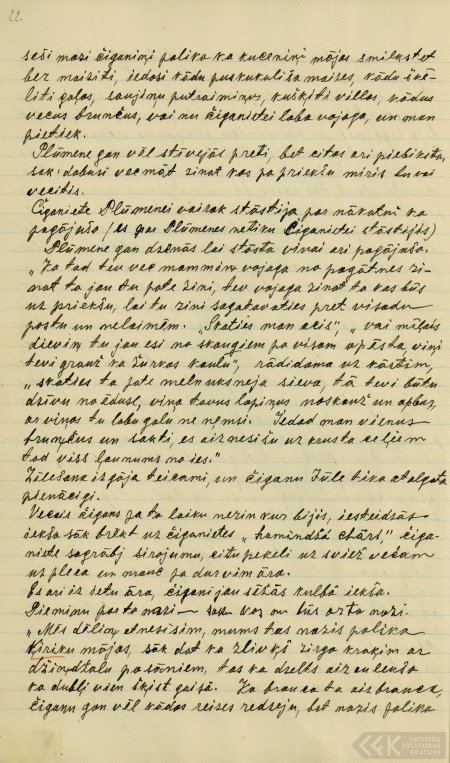 22.
seši mazi čiganiņi palika ka kuceniņi mājas smilkstot
bez maiziti, iedosi kādu puskukuliša maizes, kādu škē-
liti gaļas, saujiņu putraimiņus, kušķiti villas, kādus
vecus brunčus, vai nu čiganietei laba vajaga, un man
pietiek.
Plūmene gan vēl stīvejās preti, bet citas ari piebiksta,
sak: dabusi vecmāt zinat kas pa priekšu miris tu vai
vecitis.
Čiganiete Plūmenei vairak stāstija par nākotni ka
pagājušo (es gan Plūmenes netiku Čiganietei stāstijis)
Plūmene gan dzenās lai stāsta viņai ari pagājušo.
"Ka tad tev vec mammiņ vajaga no pagātnes zi-
nat to jau tu pate zini, tev vajaga zinat to kas būs
uz priekšu, lai tu zini sagatavaties pret visadu
postu un nelaimēm. "Skaties man acis", "vai mīļais
dieviņ tu jau esi no skauģiem pa visam apēsta, viņi
tevi grauž ka žurkas kaulu", rādidama uz kārtim,
"skaties ta pate melnuksneja sieva, tā tevi būtu
dzīvu noēduse, viņa tavus lopiņus noskauž un apbur,
ar viņas tu labu galu ne ņemsi. Iedod man vienus
brunčus un sakti, es aiznesišu uz krusta ceļiem
tad viss ļaunums no ies."
Zilešana izgāja teicami, un čiganu Jūle tika atalgota
pienācigi.
Vecais čigans pa to laiku nezin kur bijis, iesteidzās
iekša sāk brēkt uz čiganietes "hamindžā chārs", čiga-
niete sagrābj sirojumu, citu pekeli uz sviež vecam
uz pleca un prom pa durvim āra.
Es ari iz ietu āra, čigani jau sēžās kulbā iekša.
Pieminu par to nazi – sak kas nu būs ar to nazi.
"Mēs dēliņ atnesisim, mums tas nazis palika
Ķiriku mājas, sāk dot ka zlivkš zirga kraķim ar
džindžalu pa sāniem, tas ka dzelts aizaulekšo
ka dubļi vien škist gaisā. Ka brauca ta aizbrauca,
čiganu gan vēl kādas reizes redzeju, bet nazis palika
LATVIEŠU
FOLKLORAS
KRĀTUVE